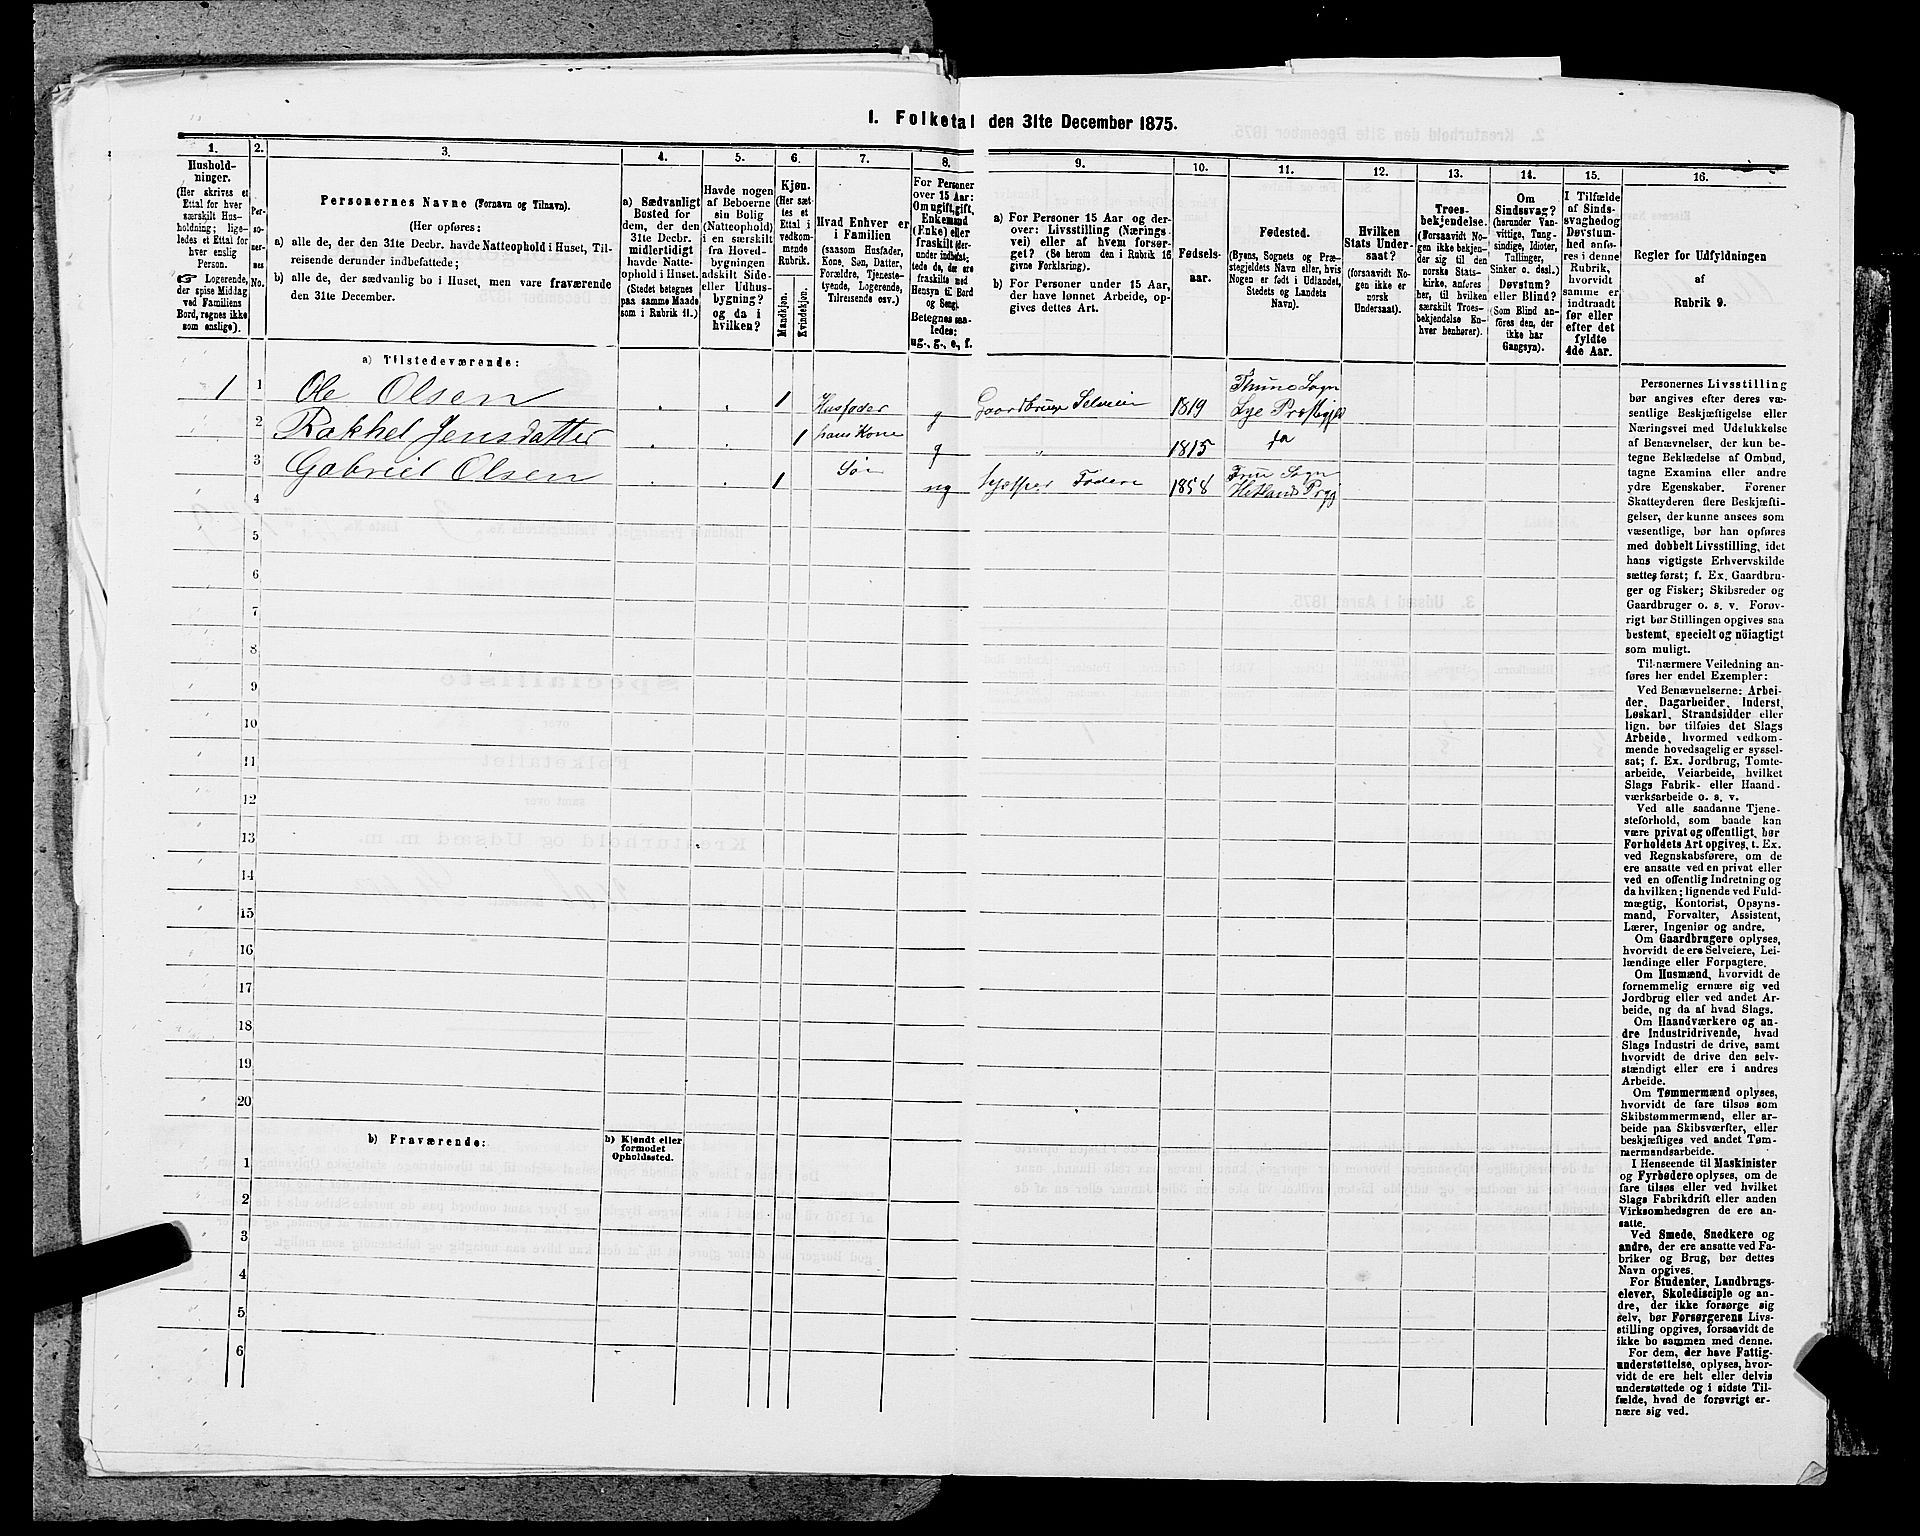 I. Folketal den 31te December 1875.
1.
Hushold-
ninger.
(Her skrives et
Ettal for hver
særskilt Hus-
holdning; lige-
ledes et Ettal for
hver enslig
Person.
☞ Logerende,
der spise Middag
ved Familiens
Bord, regnes ikke
som enslige).
2.
Per-
so-
ner-
nes
No.
3.
Personernes Navne (Fornavn og Tilnavn).
(Her opføres:
a) alle de, der den 31te Decbr. havde Natteophold i Huset, Til-
reisende derunder indbefattede;
b) alle de, der sædvanlig bo i Huset, men vare fraværende
den 31te December.
4.
a) Sædvanligt
Bosted for
dem, der den
31te Decbr.
midlertidigt
havde Natte-
ophold i Huset.
(Stedet betegnes
paa samme Maade
som i Rubrik 11.)
5.
Havde nogen
af Beboerne
sin Bolig
(Natteophold)
i en særskilt
fra Hoved-
bygningen
adskilt Side-
eller Udhus-
bygning?
og da i
hvilken?
6.
Kjøn.
(Her sæt-
tes et
Ettal i
vedkom-
mende
Rubrik.
Mandkjøn.
Kvindekjøn.
7.
Hvad Enhver er
i Familien
(saasom Husfader,
Kone, Søn, Datter,
Forældre, Tjeneste-
tyende, Logerende,
Tilreisende osv.)
8.
For Personer
over 15 Aar:
Om ugift, gift,
Enkemand
(Enke) eller
fraskilt (der-
under indbefat-
tede da, der ere
fraskilte med
Hensyn til Bord
og Seng).
Betegnes saa-
ledes:
ug., g., e., f.
9.
a) For Personer 15 Aar og der-
over: Livsstilling (Nærings-
vei) eller af hvem forsør-
get? (Se herom den i Rubrik 16
givne Forklaring).
b) For Personer under 15 Aar,
der have lønnet Arbeide, op-
gives dettes Art.
10.
Fødsels-
aar.
11.
Fødested.
(Byens, Sognets og Præ-
stegjeldets Navn eller, hvis
Nogen er født i Udlandet,
Stedets og Landets
Navn).
12.
Hvilken
Stats Under-
saat?
(forsaavidt No-
gen ikke er
norsk
Undersaat).
13.
Troes-
bekjendelse.
(Forsaavidt No-
gen ikke bekjen-
der sig til den
norske Stats-
kirke, anføres
her, til hvilken
særskilt Troes-
bekjendelse En-
hver henhører).
14.
Om
Sindssvag?
(herunder Van-
vittige, Tung-
sindige, Idioter,
Tullinger,
Sinker o. desl.)
Døvstum?
eller Blind?
(Som Blind an-
føres den, der
ikke har
Gangsyn).
15.
I Tilfælde
af Sinds-
svaghed og
Døvstum-
hed anfø-
res i denne
Rubrik,
hvorvidt
samme er
indtraadt
før eller
efter det
fyldte
4de Aar.
16.
Regler for Udfyldningen
af
Rubrik 9.
a) Tilstedeværende:
1 1 Ole Olsen 1 Husfader g Gaardbruger Selveier 1819 Thime Sogn Lye Præstgjld
2 Rakhel Jensdatter 1 hans Kone g " 1815 do
3 Gabriel Olsen 1 Søn ug hjelper Faderen 1858 Frue Sogn Hetlands Prgj
4
5
6
7
8
9
10
11
12
13
14
15
16
17
18
19
20
b) Fraværende:
b) Kjendt eller
formodet
Opholdssted.
1
2
3
4
5
6
Personernes Livsstilling
bør angives efter deres væ-
sentlige Beskjæftigelse eller
Næringsvei med Udelukkelse
af Benævnelser, der kun be-
tegne Beklædelse af Ombud,
tagne Examina eller andre
ydre Egenskaber. Forener
Skatteyderen flere Beskjæfti-
gelser, der kunne ansees som
væsentlige, bør han opføres
med dobbelt Livsstilling, idet
hans vigtigste Erhvervskilde
sættes først; f. Ex. Gaardbru-
ger og Fisker; Skibsreder og
Gaardbruger o. s. v. Forøv-
rigt bør Stillingen opgives saa
bestemt, specielt og nöiagtigt
som muligt.
Til nærmere Veiledning an-
føres her endel Exempler:
Ved Benævnelserne: Arbei-
der, Dagarbeider, Inderst,
Løskarl, Strandsidder eller
lign. bør tilføies det Slags
Arbeide, hvormed vedkom-
mende hovedsagelig er syssel-
sat; f. Ex. Jordbrug, Tomte-
arbeide, Veiarbeide, hvilket
Slags Fabrik- eller Haand-
værksarbeide o. s. v.
Ved alle saadanne Tjene-
steforhold, som baade kan
være privat og offentligt, bør
Forholdets Art opgives, t. Ex.
ved Regnskabsførere, om de
ere ansatte ved en privat eller
ved en offentlig Indretning og
da hvilken; lignende ved Fuld-
mægtig, Kontorist, Opsyns-
mand, Forvalter, Assistent,
Lærer, Ingeniør og andre.
Om Gaardbrugere oplyses,
hvorvidt de ere Selveiere, Lei-
lændinge eller Forpagtere.
Om Husmænd, hvorvidt de
fornemmelig ernære sig ved
Jordbrug eller ved andet Ar-
beide, og da af hvad Slags.
Om Haandværkere og an-
dre Industridrivende, hvad
Slags Industri de drive, samt
hvorvidt de drive den selv-
stændigt eller ere i andres
Arbeide.
Om Tømmermænd oplyses,
hvorvidt de fare tilsøs som
Skibstømmermænd, eller ar-
beide paa Skibsværfter, eller
beskjæftiges ved andet Tøm-
mermandsarbeide.
I Henseende til Maskinister
og Fyrbødere oplyses, om de
fare tilsøs eller ved hvilket
Slags Fabrikdrift eller anden
Virksomhedsgren de ere an-
satte.
Ved Smede, Snedkere og
andre, der ere ansatte ved Fa-
briker og Brug, bør dettes
Navn opgives.
For Studenter, Landbrugs-
elever, Skoledisciple og an-
dre, der ikke forsørge sig
selv, bør Forsørgerens Livs-
stilling opgives, forsaavidt de
ikke bo sammen med denne.
For dem, der have Fattig-
understøttelse, oplyses, hvor-
vidt de ere helt eller delvis
understøttede og i sidste Til-
fælde, hvad de forøvrigt er-
nære sig ved.